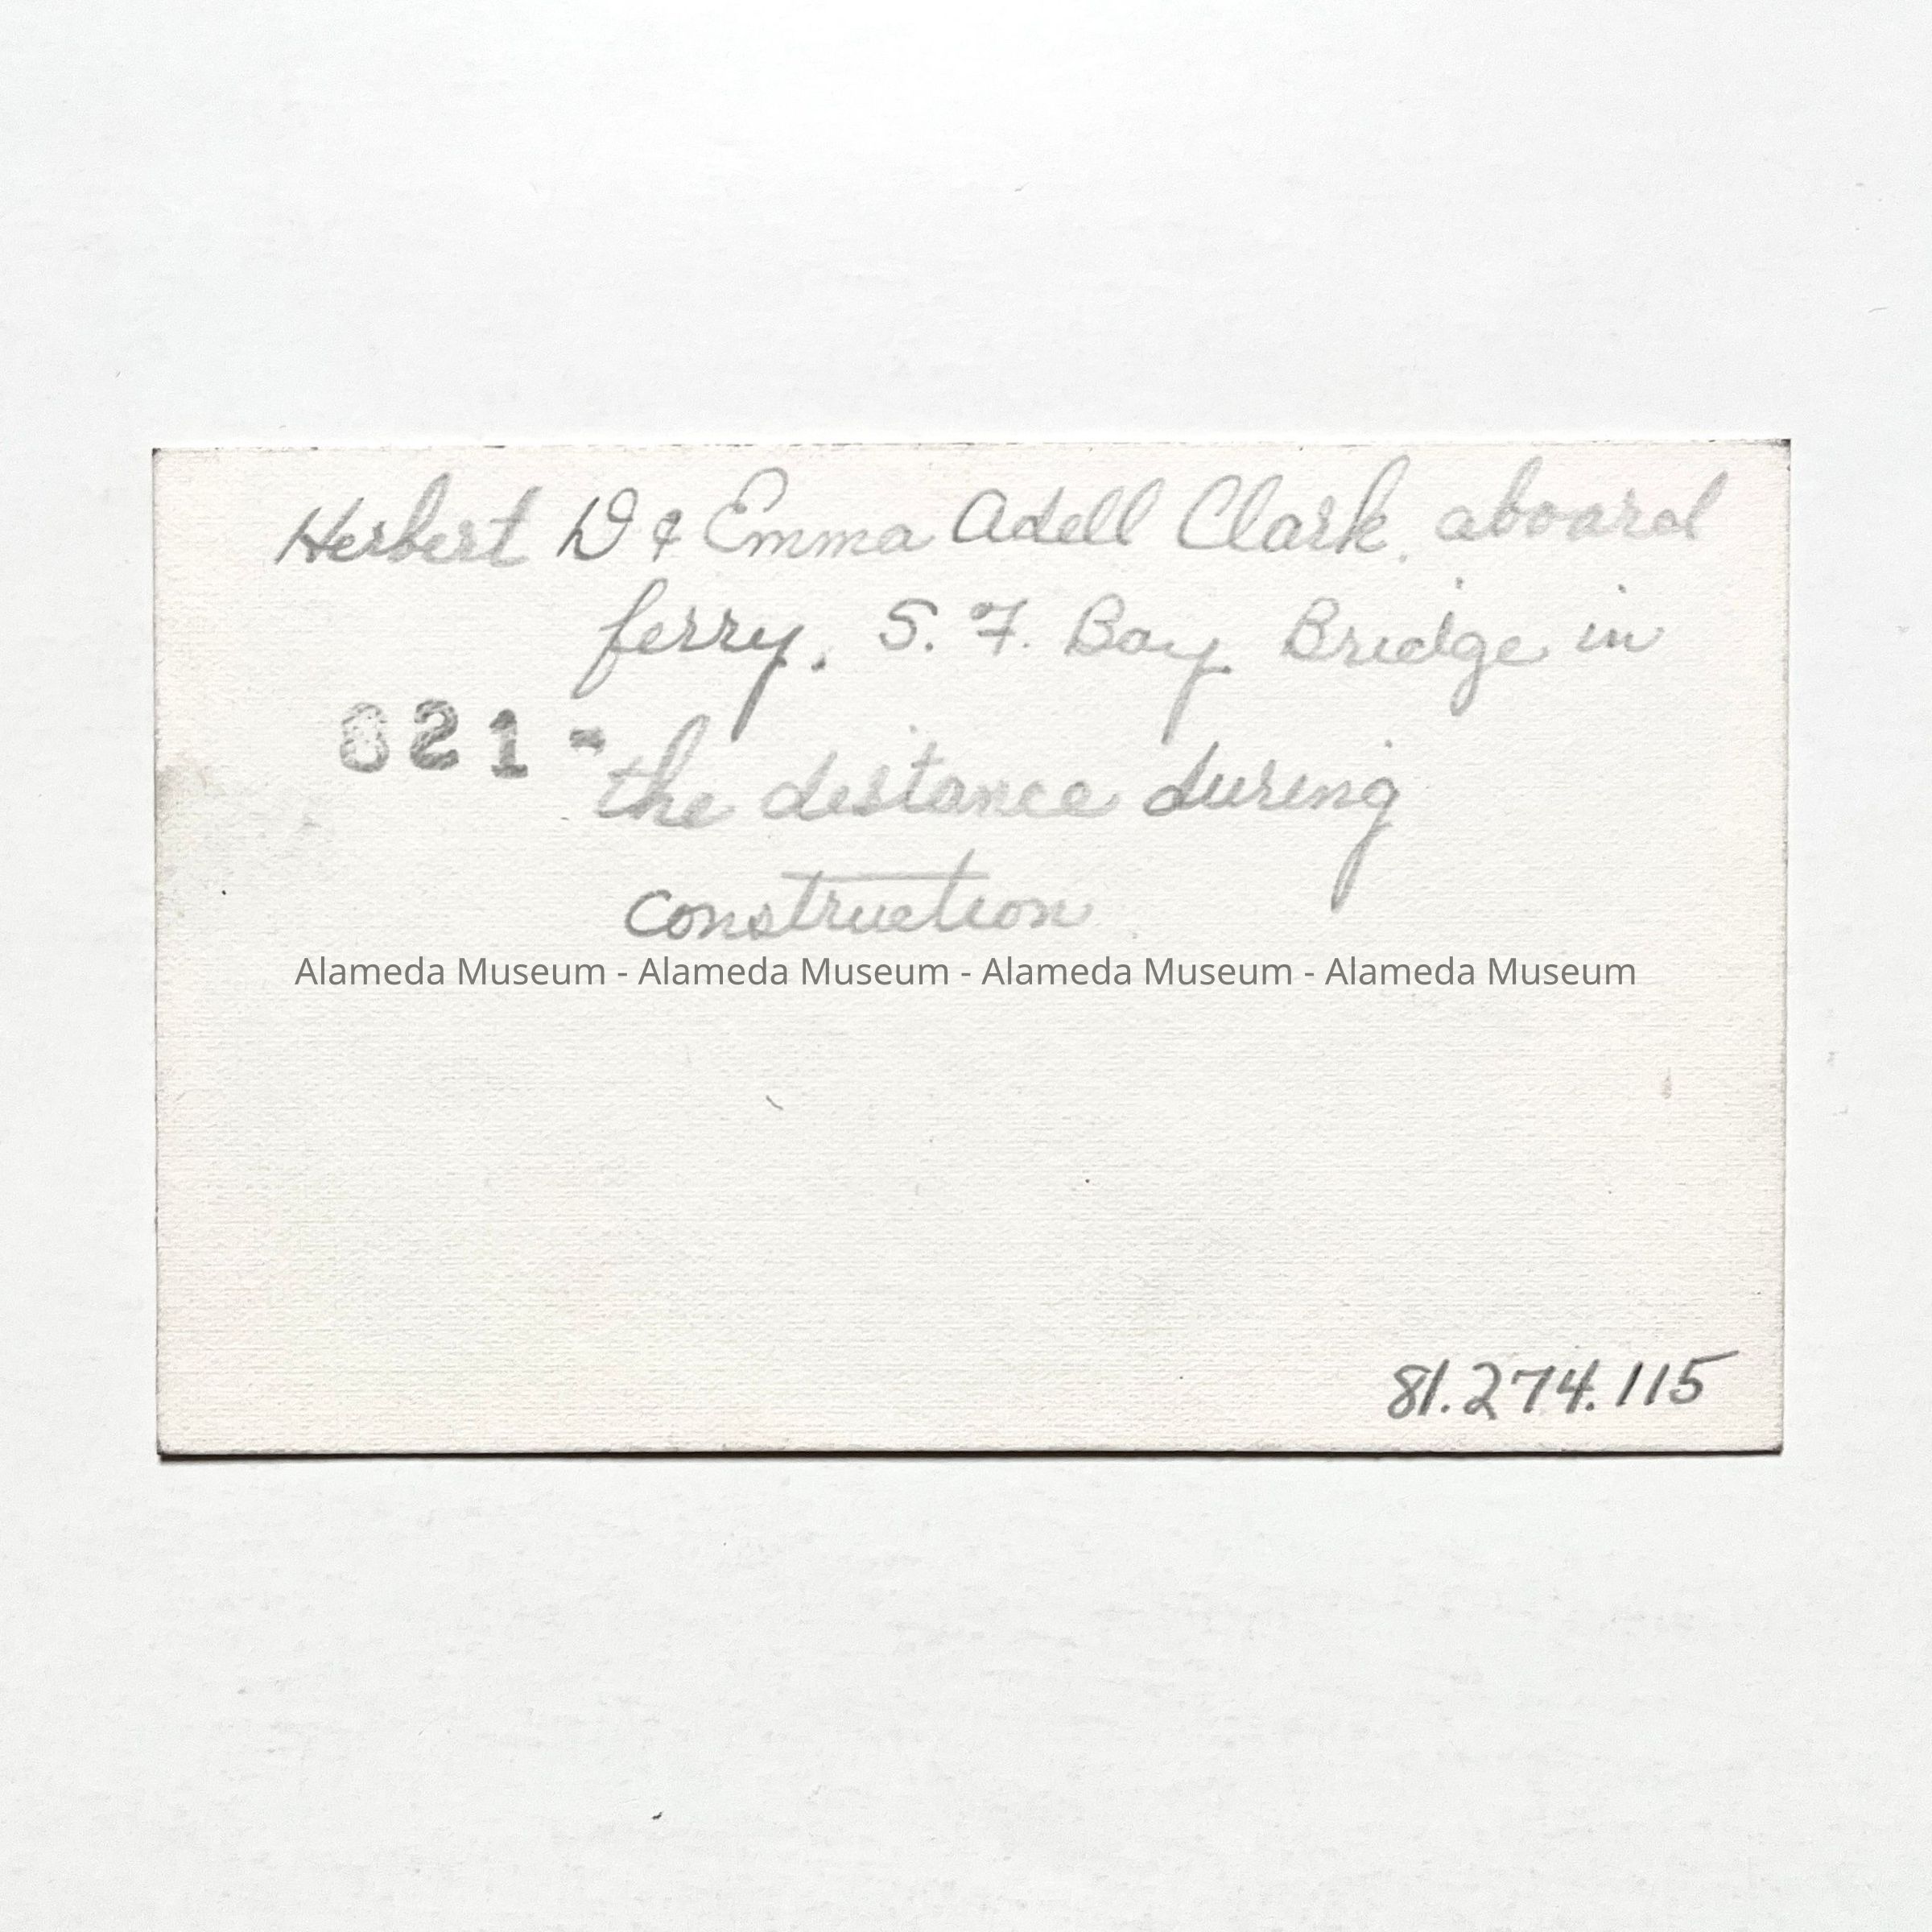 Herbert D & Emma Adell Clark. aboard
ferry. S. F. Bay Bridge in
821-
the distance during
construction
Alameda Museum - Alameda Museum - Alameda Museum - Alameda Museum
81.274.115